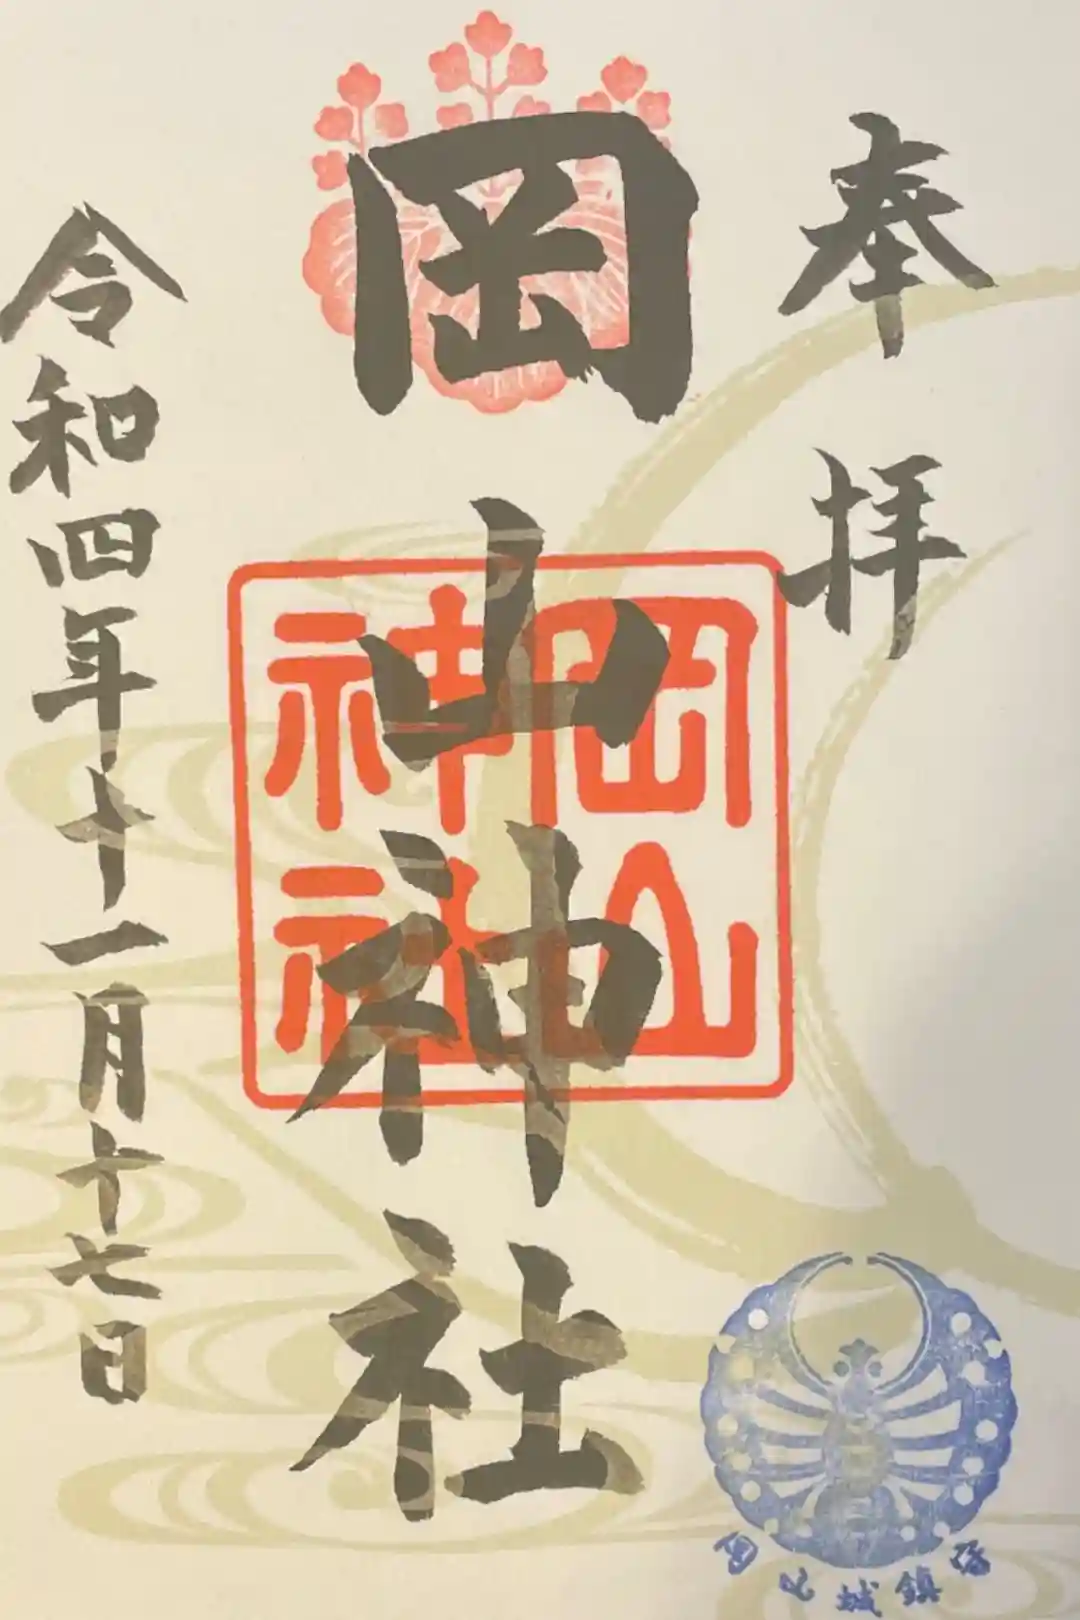 奉拝
岡山神社
岡山
神社
令和四年十一月十七日
岡山城鎮守